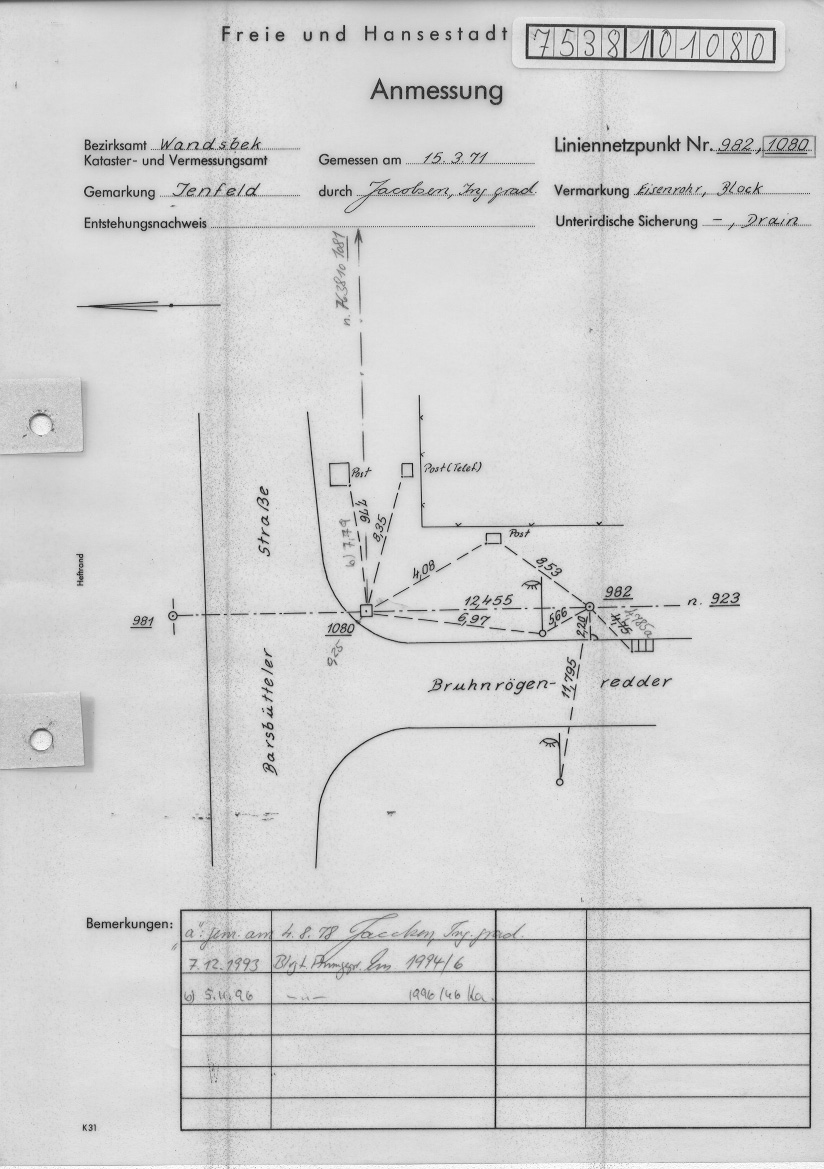 Freie und Hansestadt
7538101080
Anmessung
Bezirksamt Wandsbek
Kataster- und Vermessungsamt
Gemessen am 15.3.71
Liniennetzpunkt Nr. 982, 1080
Gemarkung Jenfeld
durch Jacobsen, Ing. grad.
Vermarkung Eisenrohr, Block
Entstehungsnachweis
Unterirdische Sicherung –, Drain
Post
Post (Telef)
Straße
b) 7,79
8,35
Post
4,08
8,53
Heftrand
12,455
982
n. 923
981
6,97
5,66
2,20
4,75
1080
925
11,795
Bruhnrögen- redder
Barsbütteler
Bemerkungen:
"a": gem. am 4.8.78 Ing. grad.
7.12.1993 1994/6
b) 5.11.96 –"– 1996/46 Ka.
K31